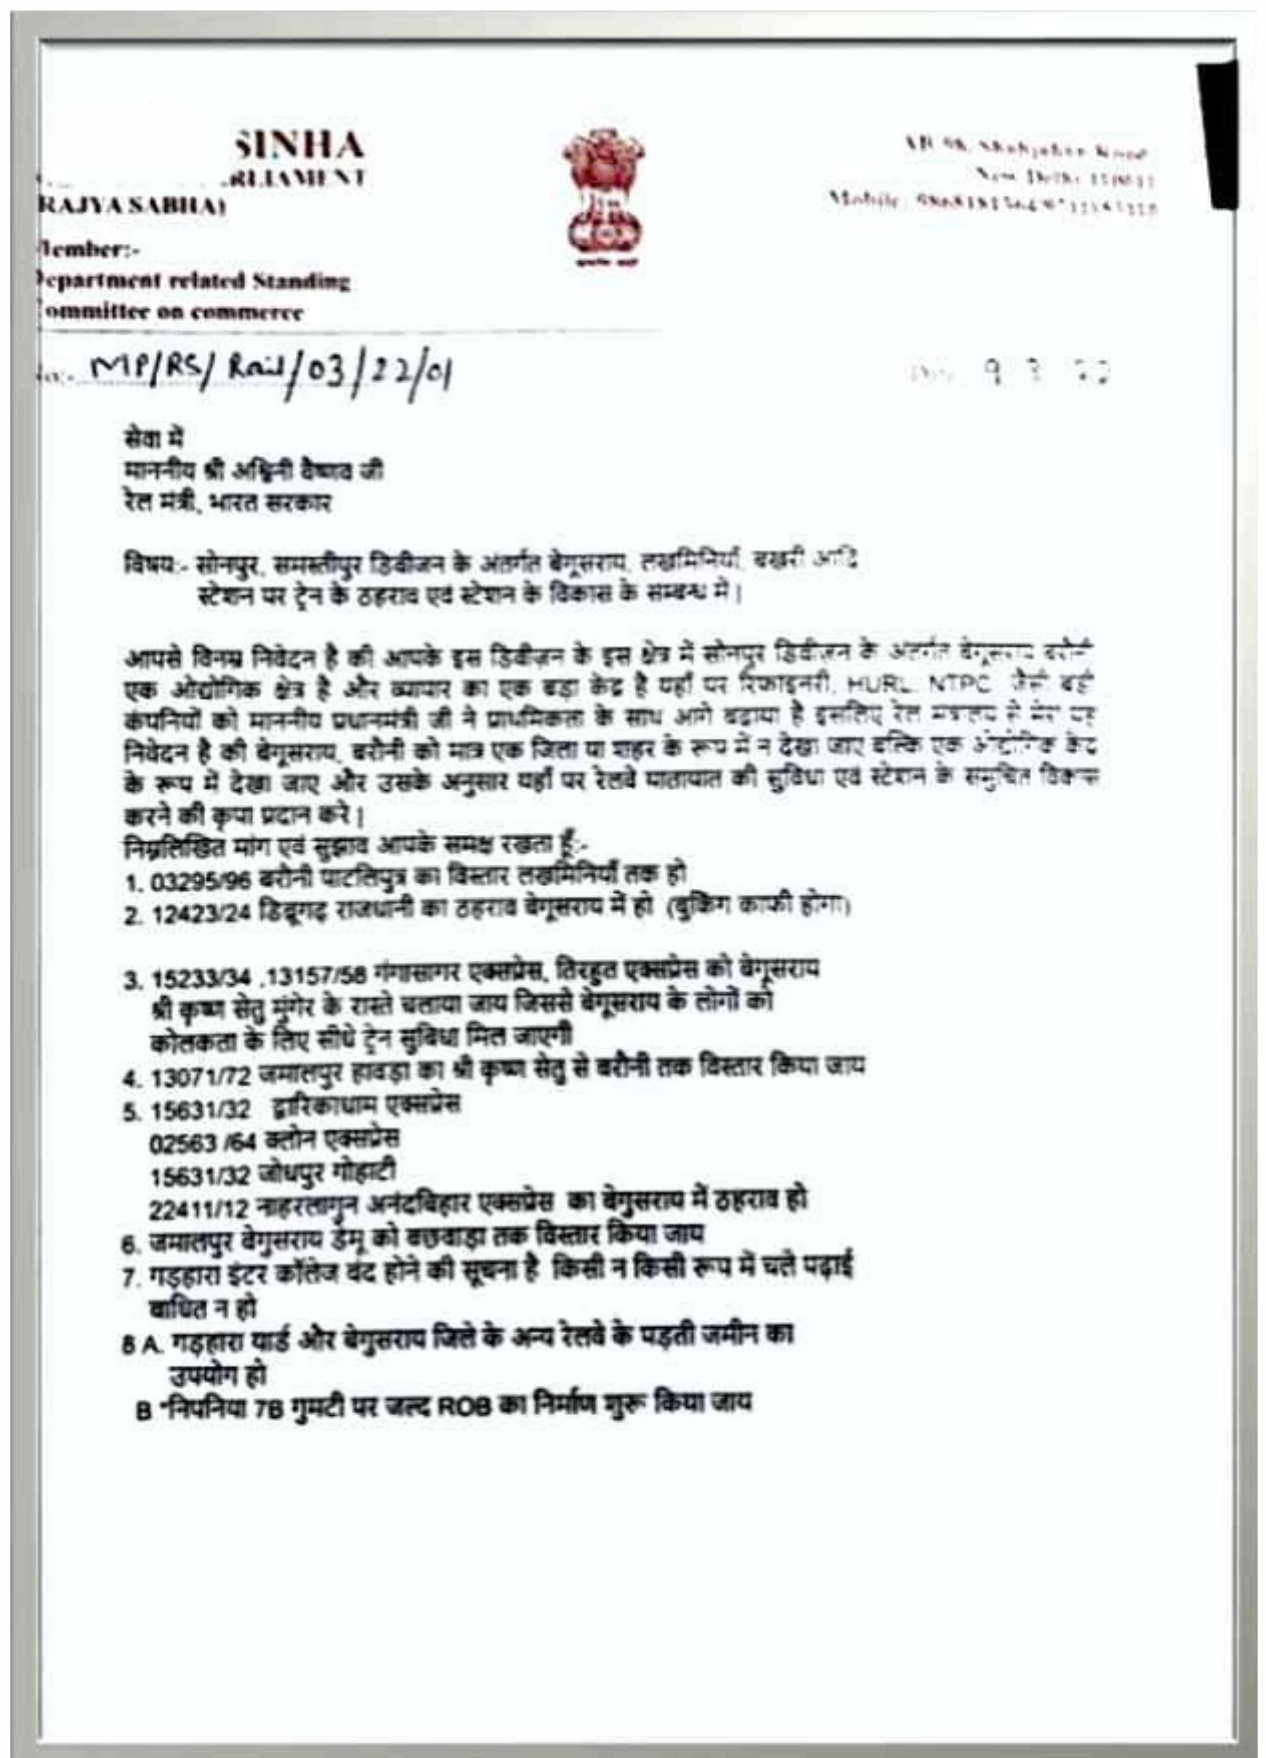 SINHA
RLIAMENT
RAJYA SABHA)
Member:-
Department related Standing
Committee on commerce
AB 98, Shahjahan Road
New Delhi
Mobile:
No:- MP/RS/Rail/03/22/01
9 3 22
सेवा में
माननीय श्री अश्विनी वैष्णव जी
रेल मंत्री, भारत सरकार
विषय:- सोनपुर, समस्तीपुर डिवीजन के अंतर्गत बेगूसराय, लखमिनियाँ, बखरी आदि
स्टेशन पर ट्रेन के ठहराव एवं स्टेशन के विकास के सम्बन्ध में।
आपसे विनम्र निवेदन है की आपके इस डिवीज़न के इस क्षेत्र में सोनपुर डिवीज़न के अंतर्गत बेगूसराय बरौनी
एक ओद्योगिक क्षेत्र है और व्यापार का एक बड़ा केंद्र है यहाँ पर रिफाइनरी, HURL, NTPC जैसी बड़ी
कंपनियों को माननीय प्रधानमंत्री जी ने प्राथमिकता के साथ आगे बढ़ाया है इसलिए रेल मंत्रालय से मेरा यह
निवेदन है की बेगूसराय, बरौनी को मात्र एक जिला या शहर के रूप में न देखा जाए बल्कि एक ओद्योगिक केंद्र
के रूप में देखा जाए और उसके अनुसार यहाँ पर रेलवे यातायात की सुविधा एवं स्टेशन के समुचित विकास
करने की कृपा प्रदान करे।
निम्नलिखित मांग एवं सुझाव आपके समक्ष रखता हूँ:-
1. 03295/96 बरौनी पाटलिपुत्र का विस्तार लखमिनियाँ तक हो
2. 12423/24 डिब्रूगढ़ राजधानी का ठहराव बेगूसराय में हो (बुकिंग काफी होगा)
3. 15233/34 ,13157/58 गंगासागर एक्सप्रेस, तिरहुत एक्सप्रेस को बेगूसराय
श्री कृष्ण सेतु मुंगेर के रास्ते चलाया जाय जिससे बेगूसराय के लोगों को
कोलकता के लिए सीधे ट्रेन सुविधा मिल जाएगी
4. 13071/72 जमालपुर हावड़ा का श्री कृष्ण सेतु से बरौनी तक विस्तार किया जाय
5. 15631/32 द्वारिकाधाम एक्सप्रेस
02563 /64 क्लोन एक्सप्रेस
15631/32 जोधपुर गोहाटी
22411/12 नाहरलागुन अनंदविहार एक्सप्रेस का बेगुसराय में ठहराव हो
6. जमालपुर बेगुसराय डेमू को बछवाड़ा तक विस्तार किया जाय
7. गड़हारा इंटर कॉलेज बंद होने की सूचना है किसी न किसी रूप में चले पढ़ाई
बाधित न हो
8 A. गड़हारा यार्ड और बेगुसराय जिले के अन्य रेलवे के पड़ती जमीन का
उपयोग हो
B "निपनिया 7B गुमटी पर जल्द ROB का निर्माण शुरू किया जाय